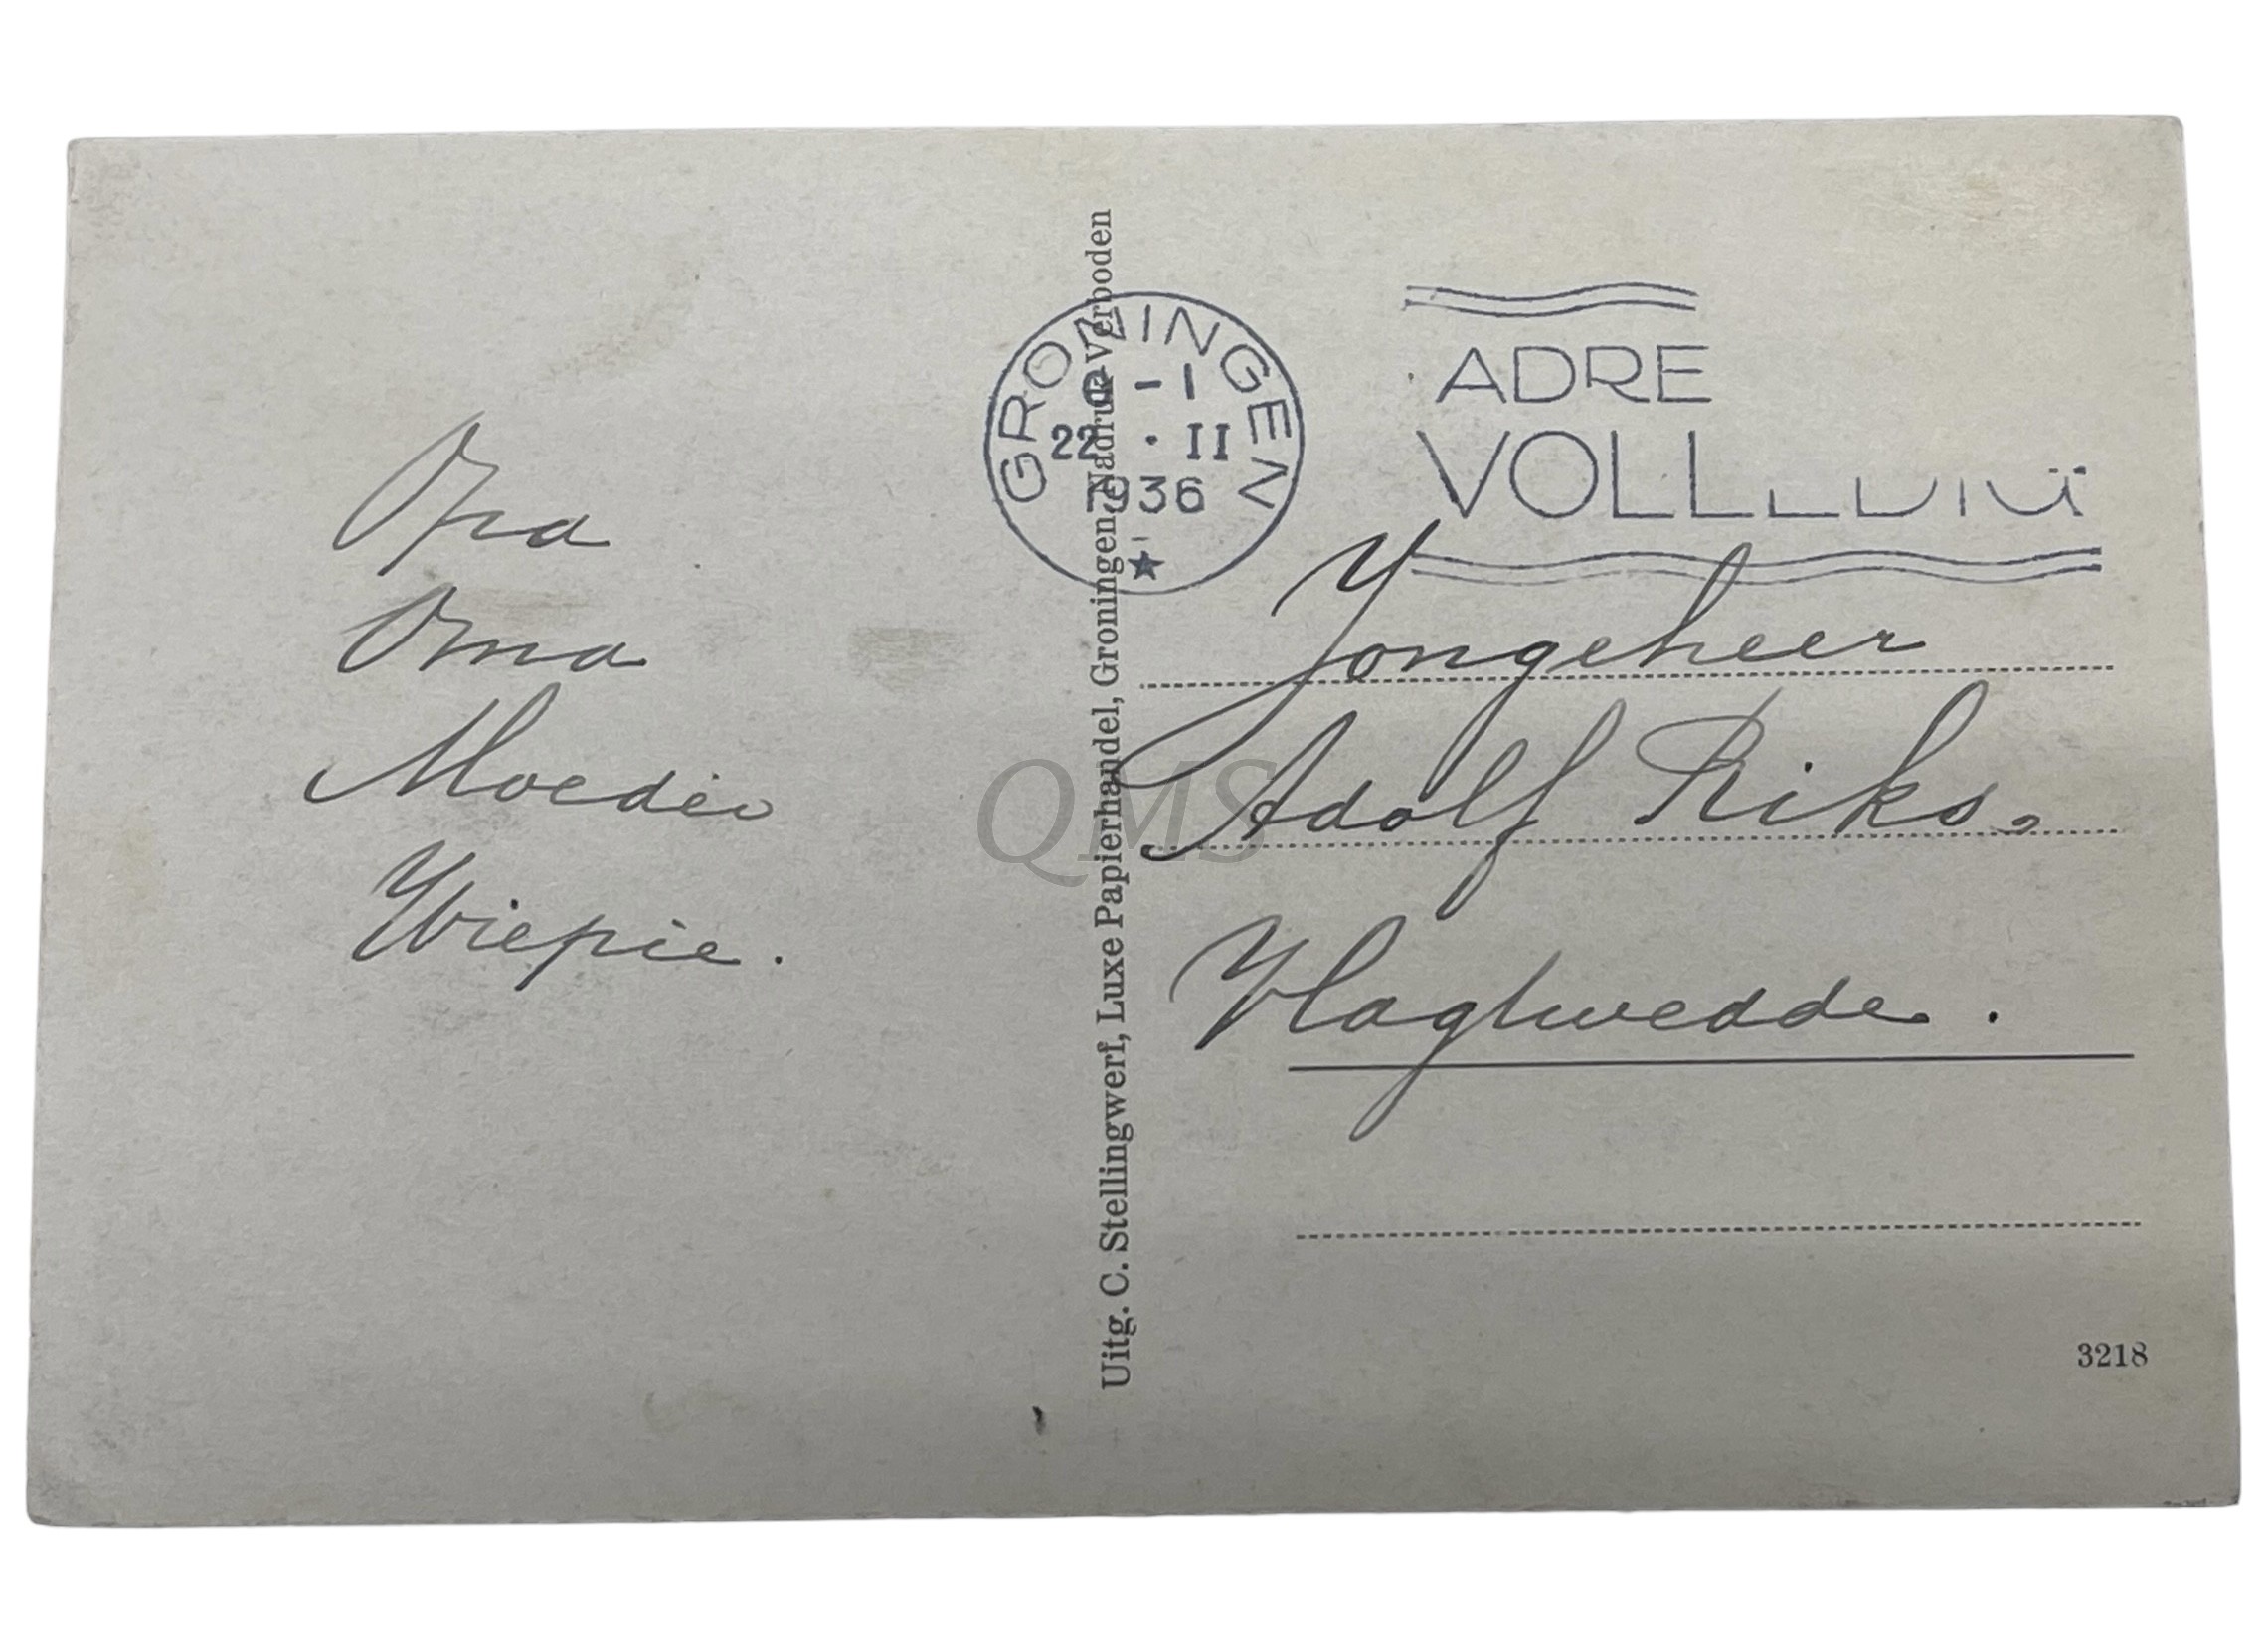 Opa
Oma
Moeder
Wiepie.
Uitg. C. Stellingwerf, Luxe Papierhandel, Groningen, Nadruk Verboden
GRONINGEN
-1
22 · II
1936
ADRE
VOLLEDIG
Jongeheer
Adolf Riks.
Vlagtwedde.
3218
QMS